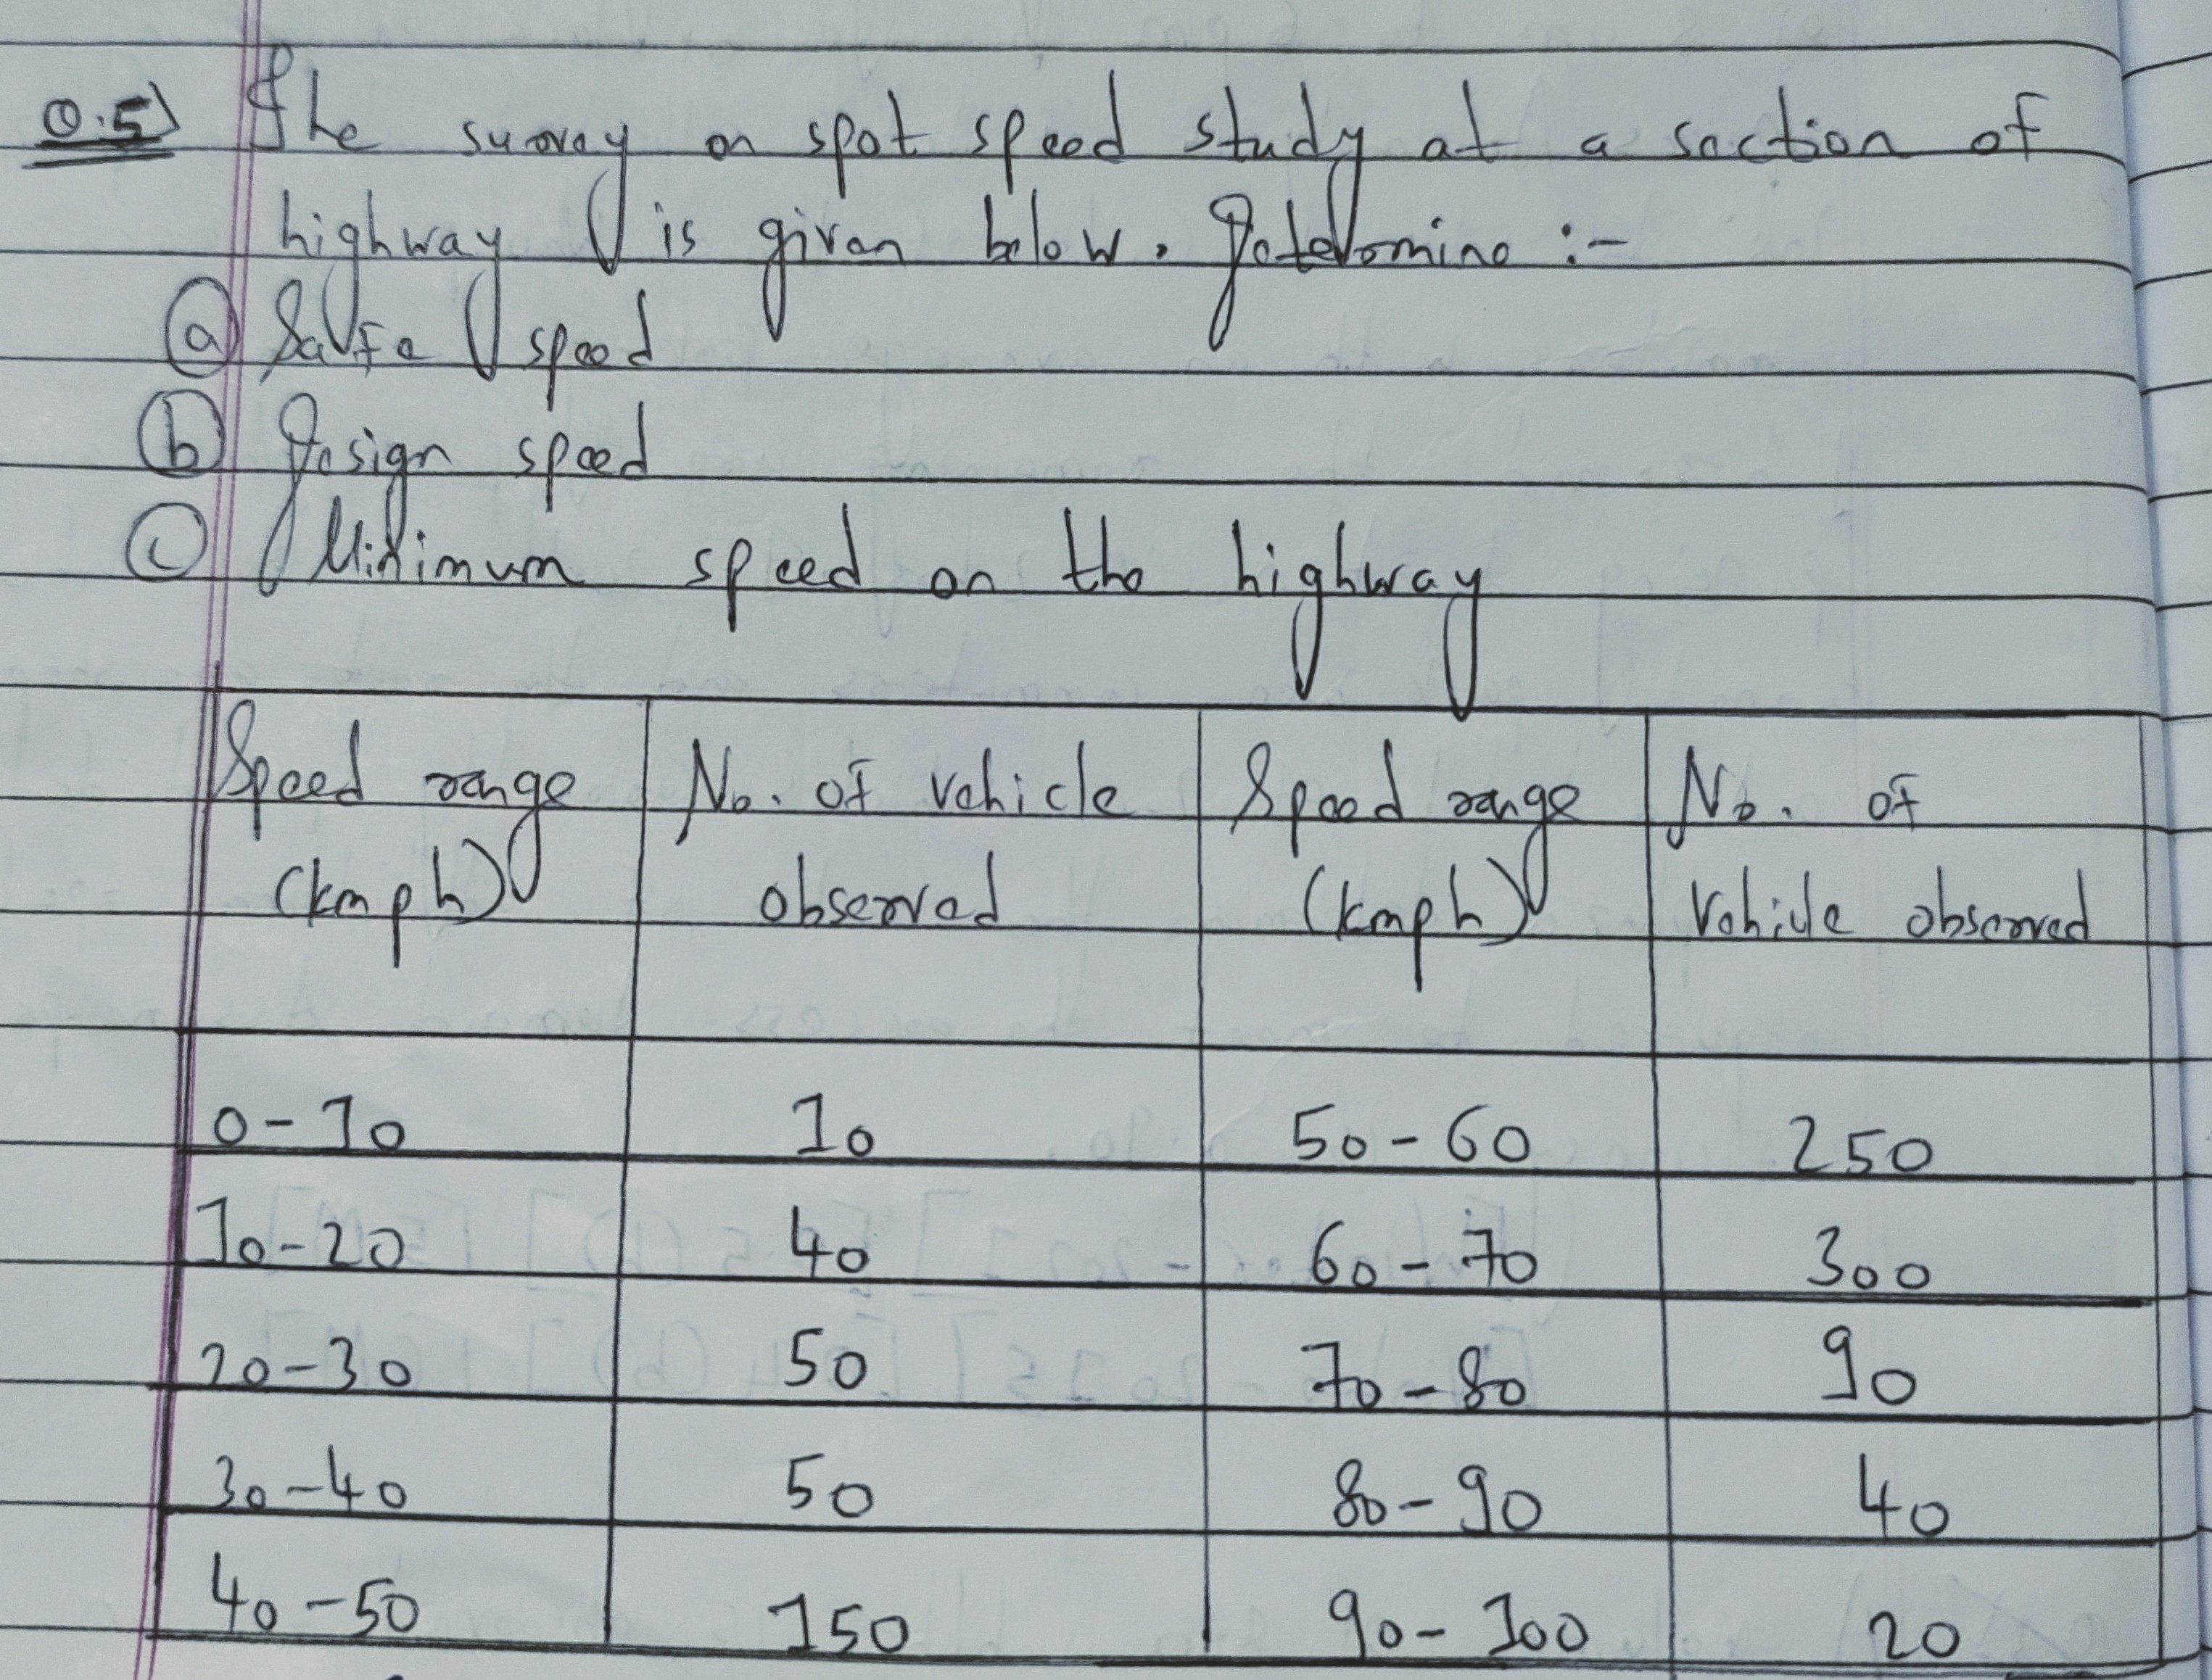 Q.5) The survey on spot speed study at a section of
highway is given below. Determine :-
(a) Safe speed
(b) Design speed
(c) Minimum speed on the highway
Speed range (kmph) No. of vehicle observed Speed range (kmph) No. of vehicle observed
0-10 10 50-60 250
10-20 40 60-70 300
20-30 50 70-80 90
30-40 50 80-90 40
40-50 150 90-100 20